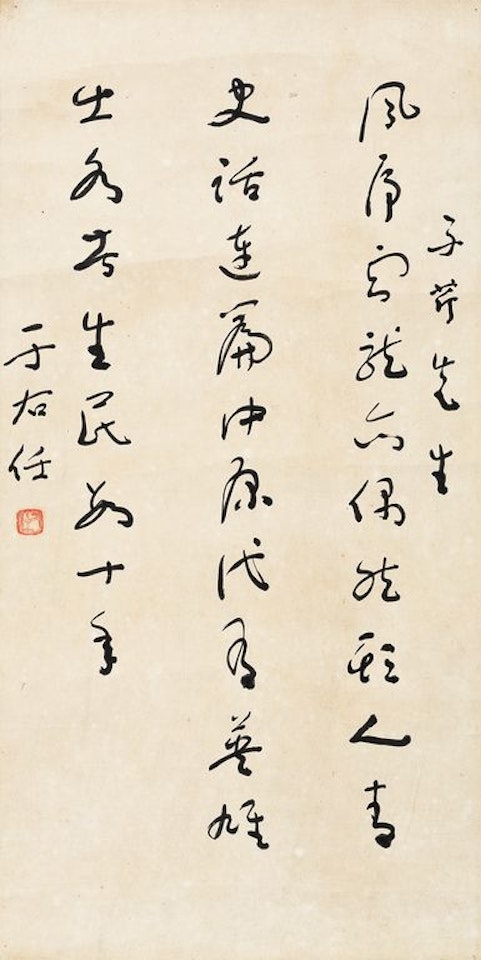 子芹先生
風虎雲龍亦偶然欺人青
史話連篇中原代有英雄
出各苦生民數十年
于右任